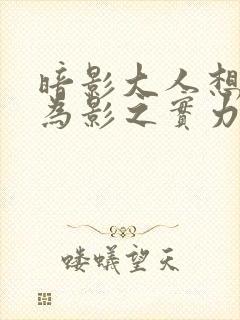 暗影大人想
為影之實力
喽蟻望天